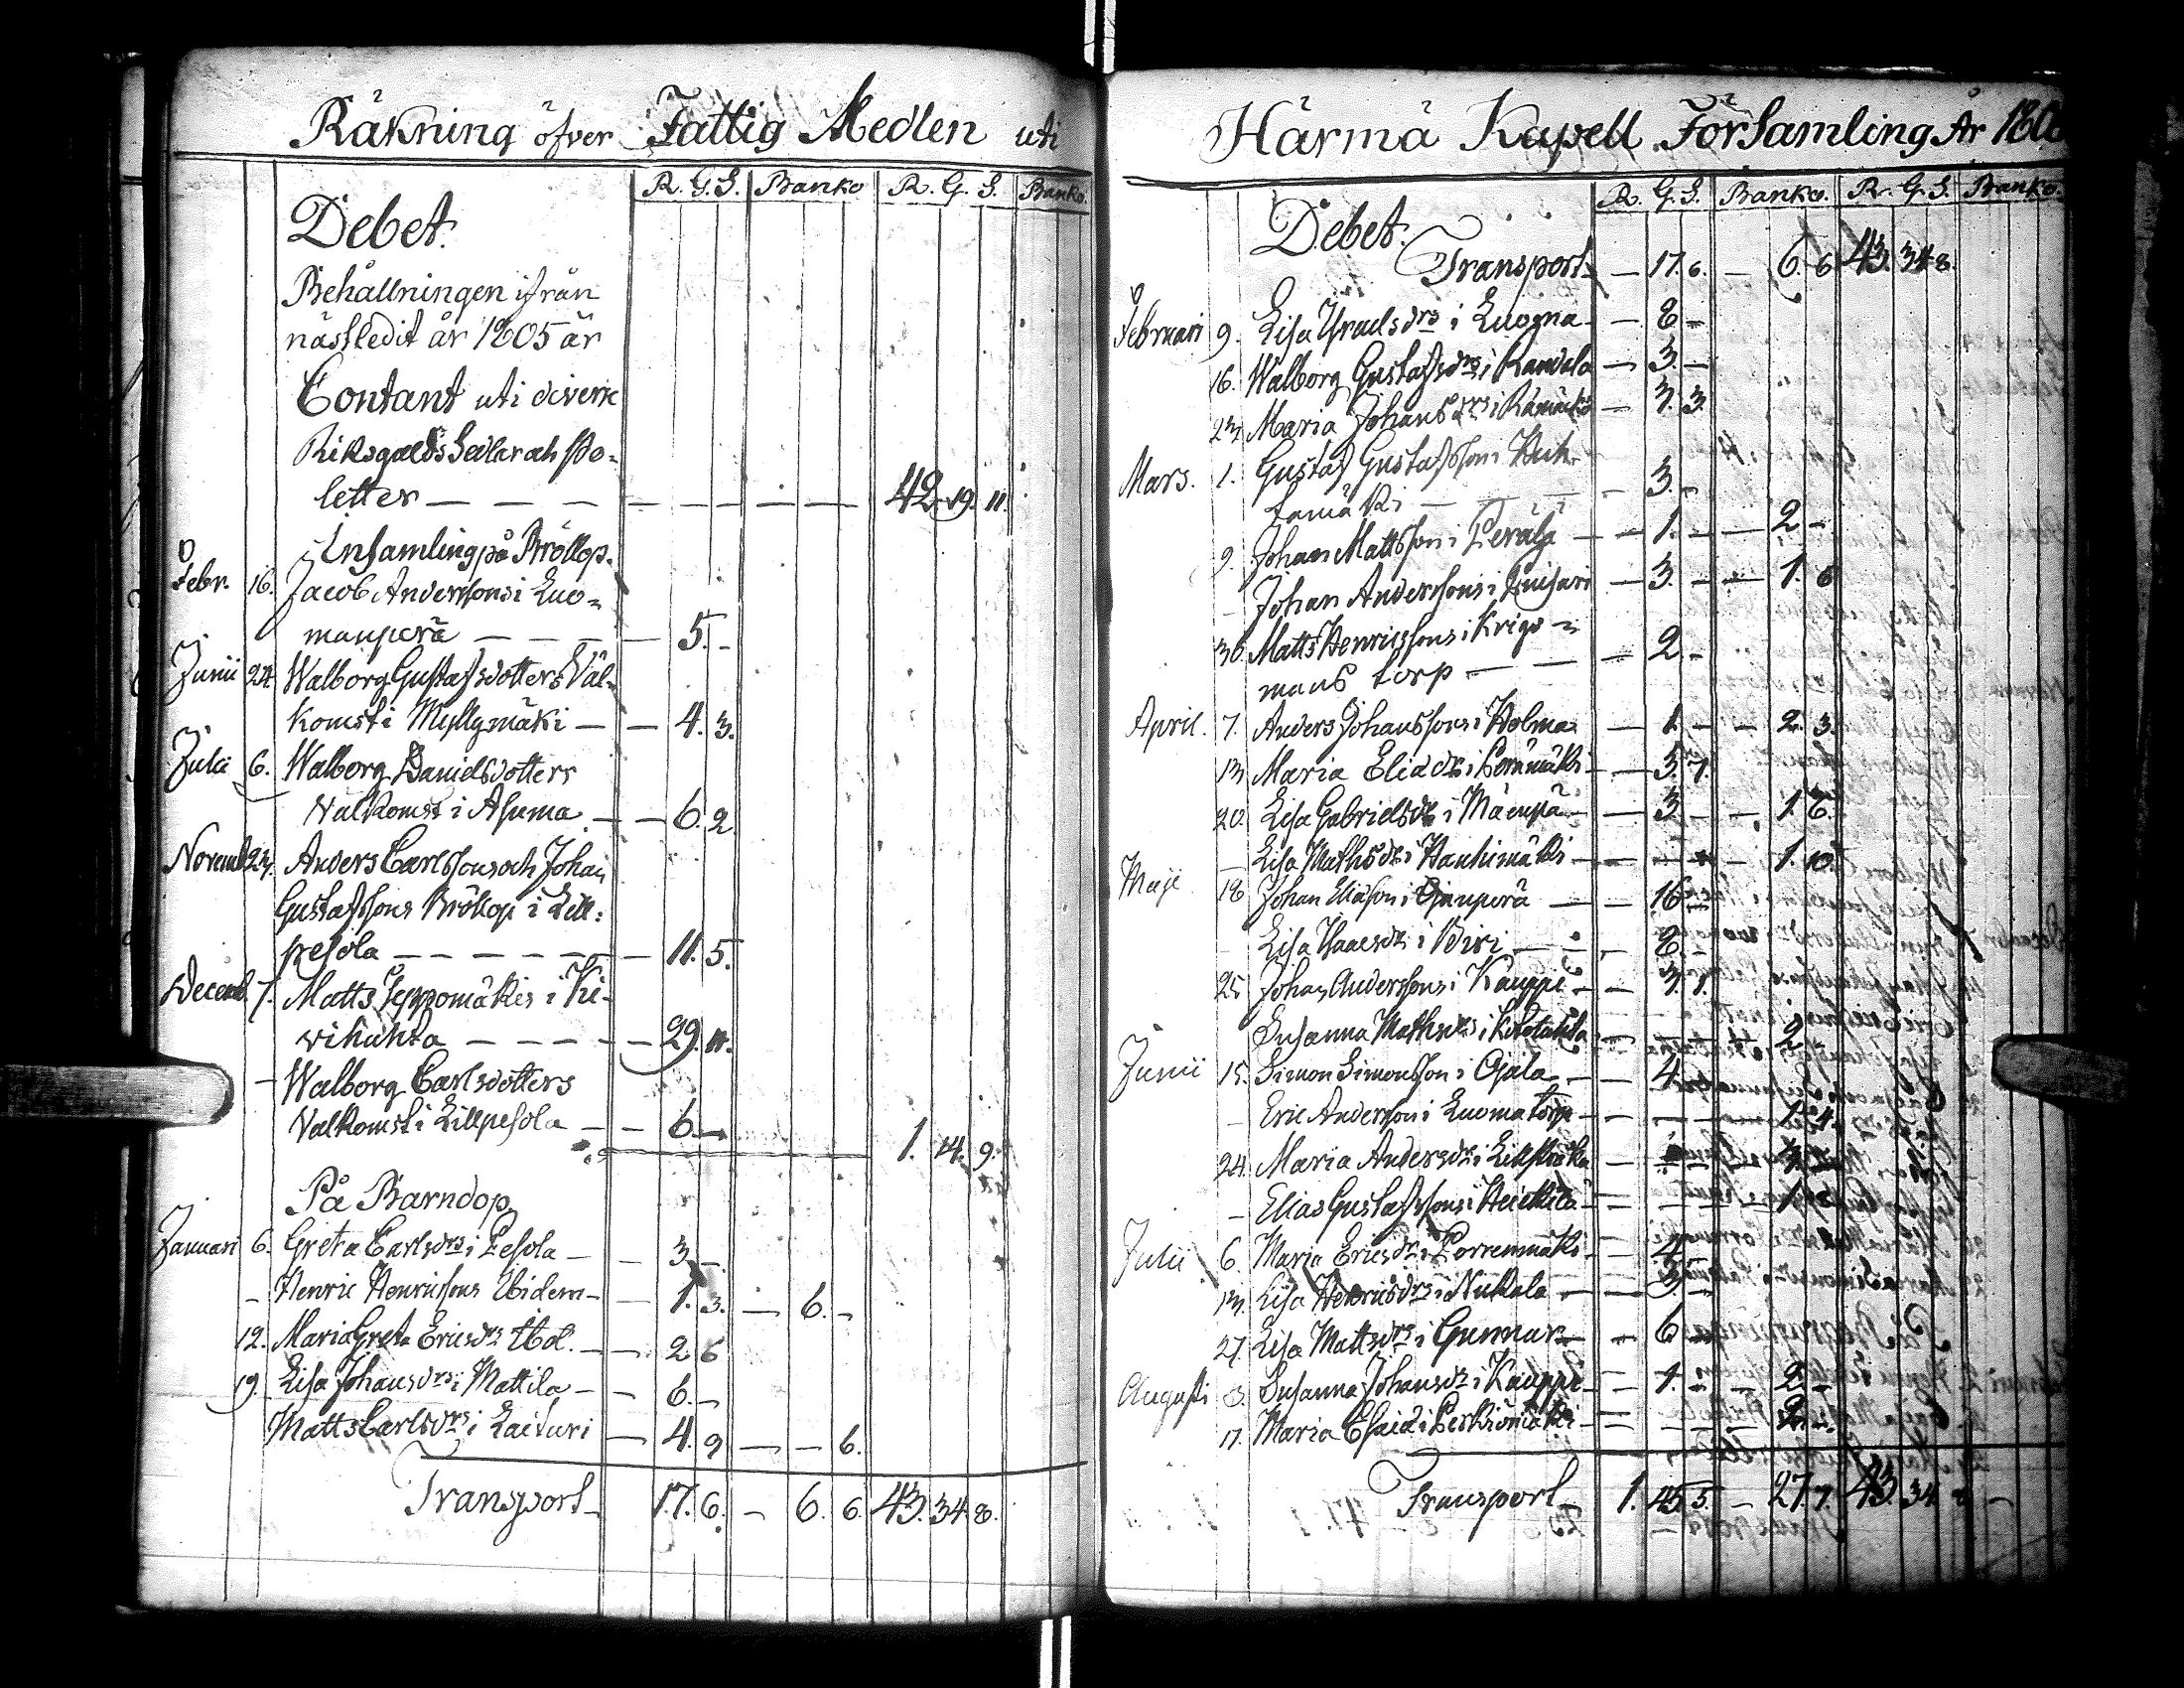 Räkning öfver Fattig Medlen uti
R. G. S. Banko R. G. S. Banko.
Debet.
Behållningen ifrån
nästledit år 1805 är
Contant uti diverse
Riksgälds Sedlar och Po-
letter — — — — — — — 42. 19. 11.
Insamling på Bröllop.
Febr. 16. Jacob Anderssons i Luo-
manperä — — — — 5. -
Junii 24. Walborg Gustafsdotters Väl-
komst i Myllymäki — — 4. 3.
Julii 6. Walborg Danielsdotters
Välkomst i Asuma — — 6. 2
Novemb. 23. Anders Carlssons och Johan
Gustafssons Bröllop i Lill-
pesola — — — — — — 11. 5.
Decemb. 7. Matts Seppomäkis i Ki-
vihuhta — — — — — 29. 11.
— Walborg Carlsdotters
Välkomst i Lillpesola — — 6. — 1. 14. 9.
På Barndop.
Januari 6. Greta Carlsdrs i Pesola — — 3 —
- Henric Henricssons Ibidem — — 1. 3. — 6. -
12. Maria Greta Ericsdrs Ibd. — — 2 6
19. Lisa Johansdrs i Mattila — — 6. —
Matts Carlsdrs i Laituri — 4. 9 — — 6.
Transport — 17. 6. — 6. 6. 43. 34. 8.
Härmä Kapell Församling År 180
R. G. S. Banko. R. G. S. Banko.
Debet.
Transport — 17. 6. — 6. 6 43. 34 8.
Februari 9. Lisa Israelsdrs i Luoma — — 8 —
16. Walborg Gustafsdrs i Kandola — 3. —
23. Maria Johansdrs i — 3. 3.
Mars. 1. Gustaf Gustafsson i Huh-
tamäki — — — — 3. —
9. Johan Mattsson i Perälä — — 1. — — 2 —
- Johan Anderssons i — 3. — — 1. 6
30. Matts Henricssons i Krigs-
mans torp — — — 2. —
April. 7. Anders Johanssons i Holma — 1. — — 2. 3.
13. Maria Eliædr i — — 3. 7.
20. Lisa Gabrielsdr i Mäenpä — — 3. — — 1. 6.
- Lisa Mathsdr i Hanhimäki — — — — 1. 10.
Maji 18. Johan Eliasson i Ojanperä — — 16 —
- Lisa Isaacsdr i Biri — — — 8. —
25. Johan Anderssons i Kauppi — — 3. 1.
Susanna Mathsdrs i — — — 2 —
Junii 15. Simon Simonsson i Ojala — — 4.
- Eric Andersson i Luoma torp — — — — 1. 4.
24. Maria Andersdr i — — —
- Elias Gustafssons i Heickilä — — — — 1.
Julii 6. Maria Ericsdr i Porrenmäki — — 4 —
13. Lisa Henricsdrs i Nukala — — 3. —
27. Lisa Mattsdrs i Gunnar — — 6 —
Augusti 3. Susanna Johansdr i Kauppi — — 1. — — 2 —
17. Maria Esaiæ i — — — — 2. —
Transport — 1. 45. 5. — 27. 7. 43. 34. 8 —